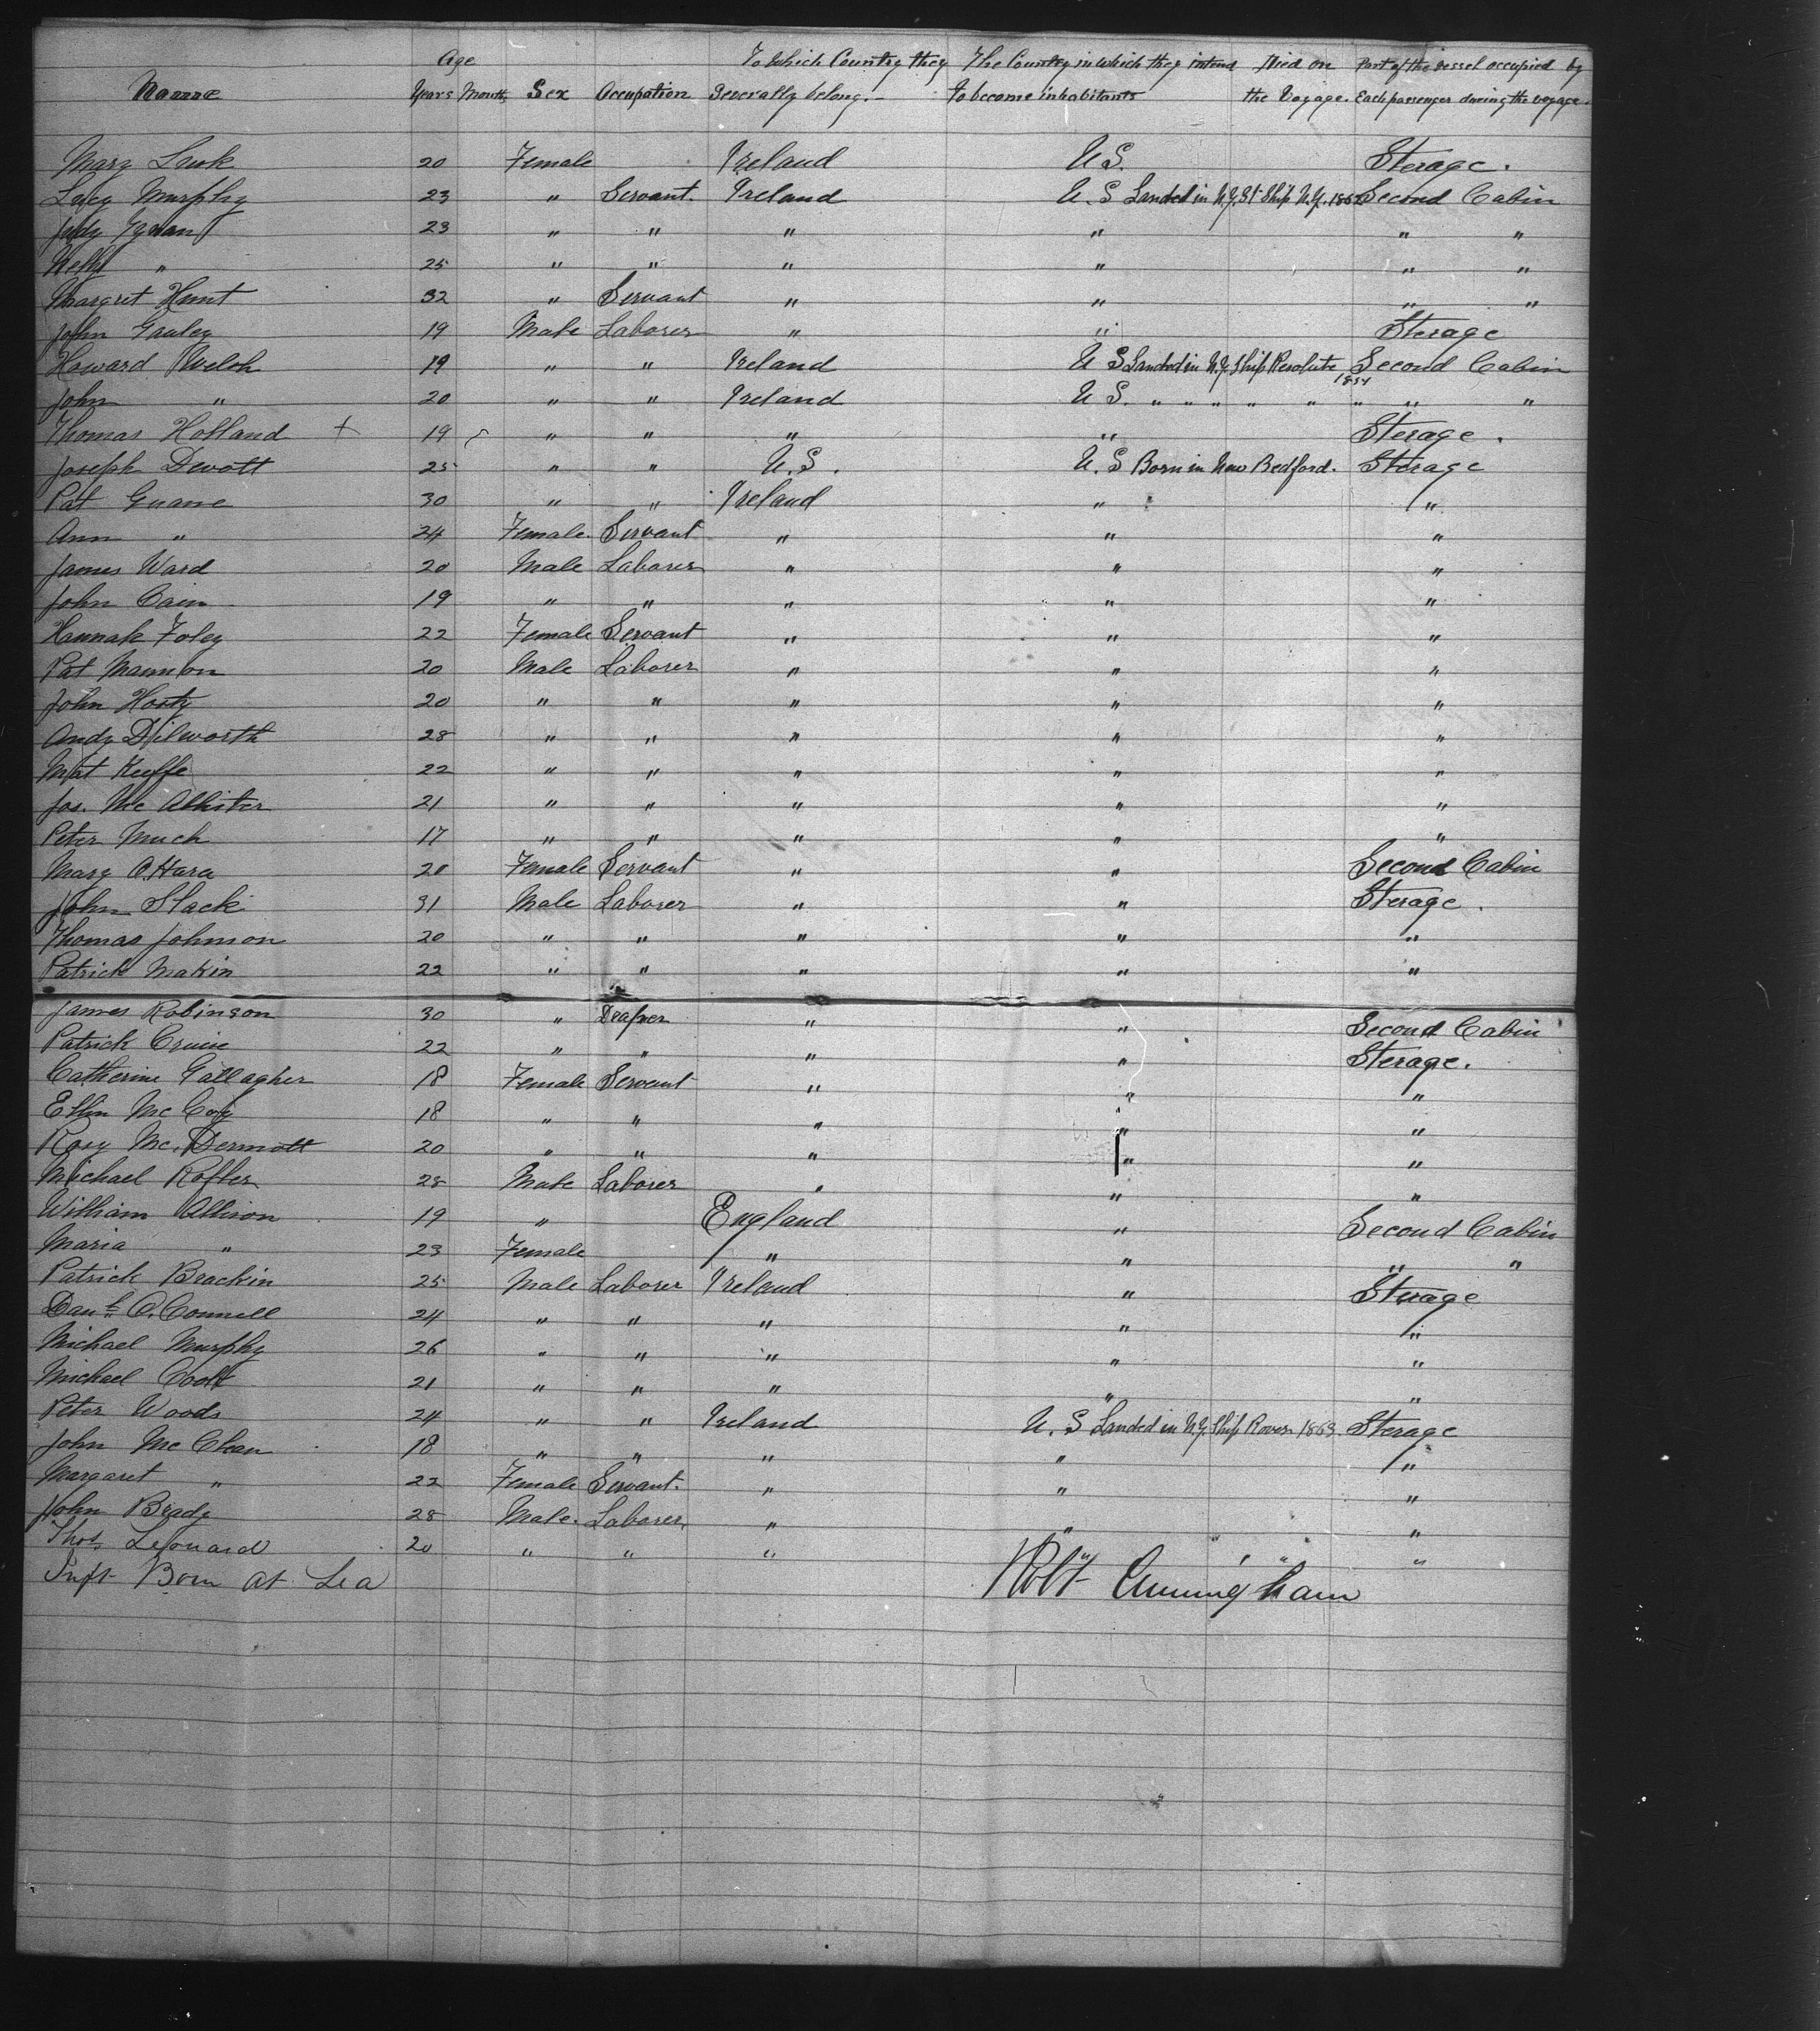 Age To Which Country they The Country in which they intend Died on Part of the vessel occupied by
Name Years Months Sex Occupation Severally belong.- to become inhabitants the Voyage. Each passenger during the voyage.
Mary 20 Female Ireland U S. Sterage.
Lucy Murphy 23 " Servant. Ireland U. S Landed in N.Y. St Ship N.Y. Second Cabin
Judy 23 " " " " " "
Nelly " 25 " " " " " "
Margret Hunt 32 " Servant " " " "
John Gauley 19 Male Laborer " " Sterage
Howard Welch 19 " " Ireland U S Landed in N.Y. Ship Resolute Second Cabin
1854
John " 20 " " Ireland U S. " " " " " " " "
Thomas Holland + 19 " " " " Sterage.
Joseph Devott 25 " " U.S. U. S Born in New Bedford. Sterage
Pat Guane 30 " " Ireland " "
Ann " 24 Female. Servant " " "
James Ward 20 Male Laborer " " "
John Cain 19 " " " " "
Hannah Foley 22 Female Servant " " "
Pat Mannion 20 Male Laborer " " "
John 20 " " " " "
Andy Dilworth 28 " " " " "
Mat Keeffe 22 " " " " "
Jas. Mc Allister 21 " " " " "
Peter Much 17 " " " " "
Mary O.Hara 20 Female Servant " " Second Cabin
John Slack 31 Male Laborer " " Sterage.
Thomas Johnson 20 " " " " "
Patrick Makin 22 " " " " "
James Robinson 30 " Draper " " Second Cabin
Patrick 22 " " " " Sterage.
Catherine Gallagher 18 Female Servant " " "
Ellin Mc Coy 18 " " " " "
Rosy Mc. Dermott 20 " " " " "
Michael 28 Male Laborer " " "
William Allison 19 " England " Second Cabin
Maria " 23 Female " " " "
Patrick Brackin 25 Male Laborer Ireland " Sterage
Danl. O. Connell 24 " " " " "
Michael Murphy 26 " " " " "
Michael 21 " " " " "
Peter Woods 24 " " Ireland U. S Landed in N.Y. Ship Rover 1863. Sterage
John Mc Clean 18 " " " " "
Margaret " 22 Female Servant. " " "
John Brady 28 Male. Laborer, " " "
Thos. Leonard 20 " " " " " " "
Inft Born at Sea Robt Cunningham